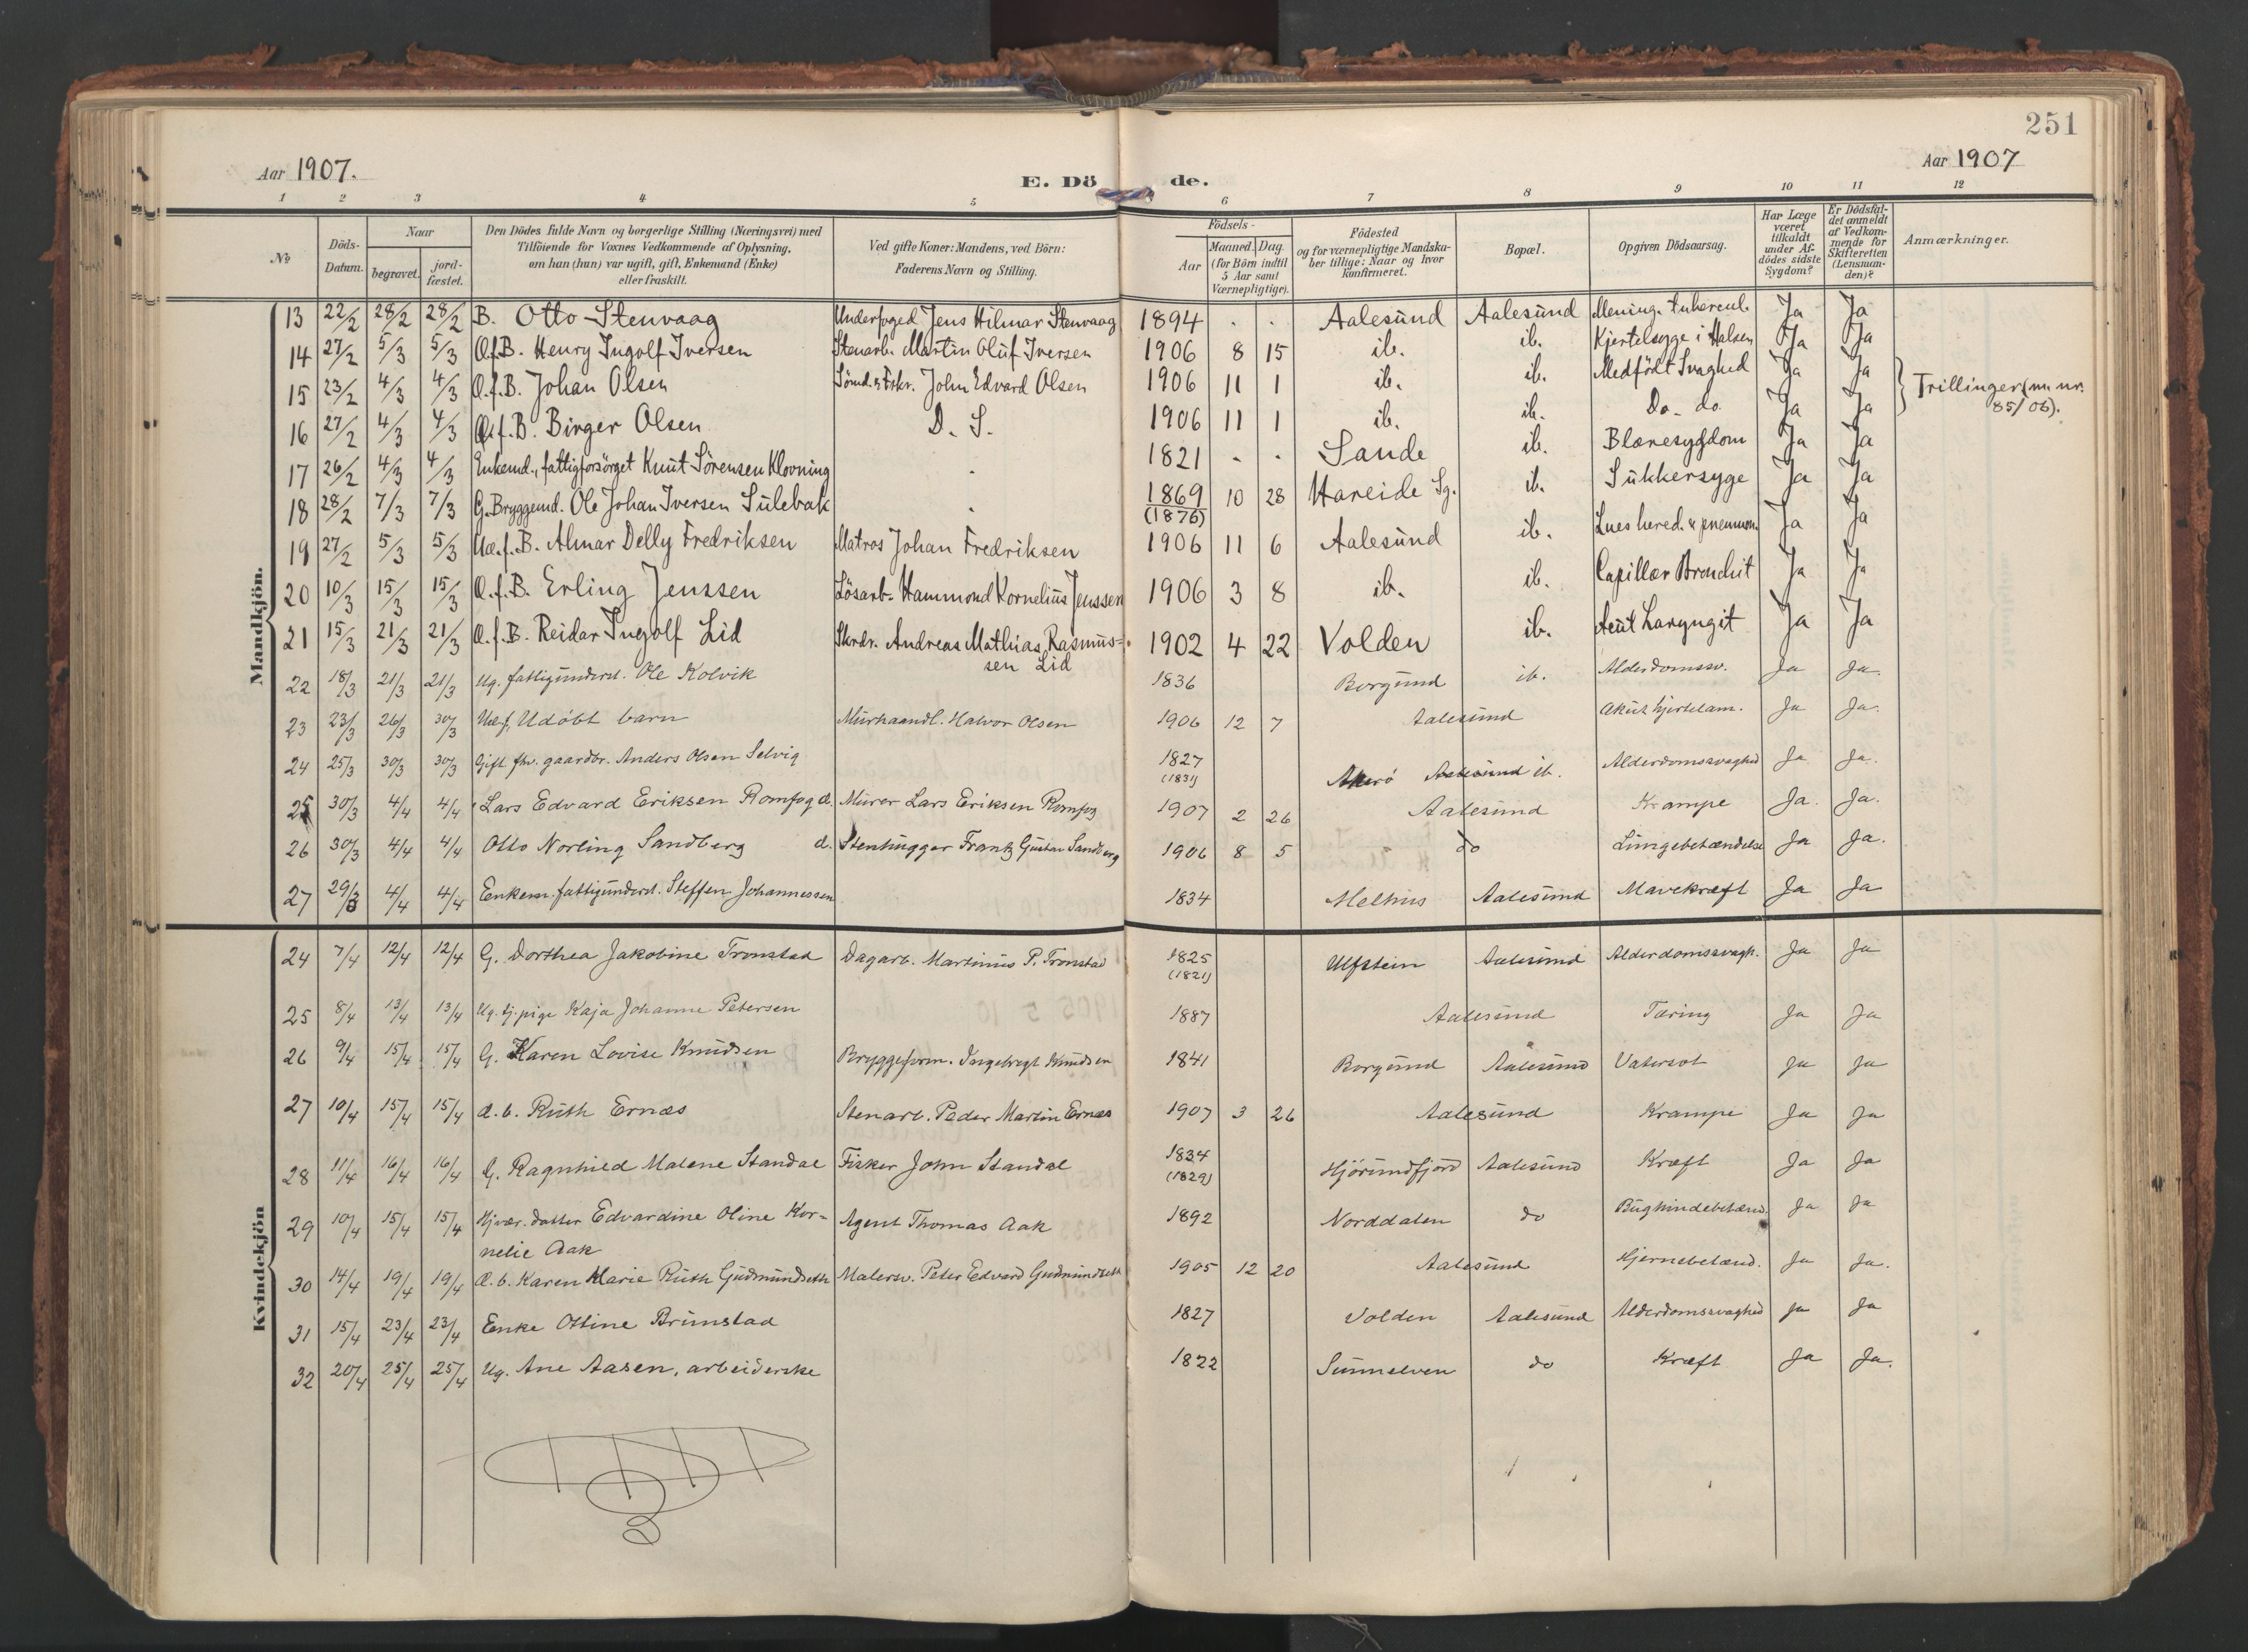 251
Aar 1907.
E. Dö
de.
Aar 1907
1 2 3 4 5 6 7 8 9 10 11 12
No
Döds-
Datum.
Naar
begravet.
jord-
fæstet.
Den Dödes fulde Navn og borgerlige Stilling (Næringsvei) med
Tilföiende for Voxnes Vedkommende af Oplysning,
om han (hun) var ugift, gift, Enkemand (Enke)
eller fraskilt.
Ved gifte Koner: Mandens, ved Börn:
Faderens Navn og Stilling.
Födsels-
Aar
Maaned. Dag.
(for Börn indtil
5 Aar samt
Værnepligtige).
Födested
og for værnepligtige Mandska-
ber tillige: Naar og hvor
konfirmeret.
Bopæl.
Opgiven Dödsaarsag.
Har Læge
været
tilkaldt
under Af-
dödes sidste
Sygdom?
Er Dödsfal-
det anmeldt
af Vedkom-
mende for
Skifteretten
(Lensman-
den)?
Anmærkninger.
Mandkjön.
13 22/2 28/2 28/2 B. Otto Stenvaag Underfoged Jens Hilmar Stenvaag 1894 . . Aalesund Aalesund Mening. tubercul. Ja Ja
14 27/2 5/3 5/3 Æ.f.B. Henry Ingolf Iversen Stenarb. Martin Oluf Iversen 1906 8 15 ib. ib. Kjertelsyge i Halsen Ja Ja
15 23/2 4/3 4/3 Æ.f.B. Johan Olsen Sömd. & Fskr. John Edvard Olsen 1906 11 1 ib. ib. Medfödt Svaghed Ja Ja Trillinger (m. nr.
16 27/2 4/3 4/3 Æ.f.B. Birger Olsen D. S. 1906 11 1 ib. ib. Do. do. Ja Ja 85/06).
17 26/2 4/3 4/3 Enkemd., fattigforsörget Knut Sörensen Klovning . 1821 . . Sande ib. Blæresygdom Ja Ja
18 28/2 7/3 7/3 G. Bryggemd. Ole Johan Iversen Sulebak . 1869 10 28 Hareide Sg. ib. Sukkersyge Ja Ja
(1876)
19 27/2 5/3 5/3 Uæ.f.B. Almar Delly Fredriksen Matros Johan Fredriksen 1906 11 6 Aalesund ib. Lues hered. & pneumon. Ja Ja
20 10/3 15/3 15/3 Æ.f.B. Erling Jenssen Lösarb. Hammond Kornelius Jenssen 1906 3 8 ib. ib. Capillær Bronchit Ja Ja
21 15/3 21/3 21/3 Æ.f.B. Reidar Ingolf Lid Skrdr. Andreas Mathias Rasmus-
sen Lid 1902 4 22 Volden ib. Acut Laryngit Ja Ja
22 18/3 21/3 21/3 Ug. fattigunderst. Ole Kolvik 1836 Borgund ib. Alderdomssv. Ja Ja.
23 23/3 26/3 30/3 Uæ.f. Udøbt barn Murhaandl. Halvor Olsen 1906 12 7 Aalesund Akut hjertelam. Ja Ja.
24 25/3 30/3 30/3 Gift fhv. gaardbr. Anders Olsen Selvig 1827 Aalesund ib. Alderdomssvaghed Ja Ja.
(1831)
25 30/3 4/4 4/4 Lars Edvard Eriksen Romfog d. Murer Lars Eriksen Romfog 1907 2 26 Aalesund Krampe Ja. Ja.
26 30/3 4/4 4/4 Otto Norling Sandberg d. Stenhugger Frantz Gustav Sandberg 1906 8 5 do Lungebetændelse Ja Ja.
27 29/3 4/4 4/4 Enkem. fattigunderst. Steffen Johannessen 1834 Melhus Aalesund Mavekræft Ja Ja
Kvindekjön
24 7/4 12/4 12/4 G. Dorthea Jakobine Tronstad Dagarb. Martinius P. Tronstad 1825 Ulfstein Aalesund Alderdomssvagh. Ja Ja
(1821)
25 8/4 13/4 13/4 Ug. tj.pige Kaja Johanne Petersen 1887 Aalesund Tæring Ja Ja
26 9/4 15/4 15/4 G. Karen Lovise Knudsen Bryggeform. Ingebregt Knudsen 1841 Borgund Aalesund Vatersot Ja Ja
27 10/4 15/4 15/4 Æ. b. Ruth Ernæs Stenarb. Peder Martin Ernæs 1907 3 26 Aalesund Krampe Ja Ja
28 11/4 16/4 16/4 G. Ragnhild Malene Standal Fisker John Standal 1834 Hjörundfjord Aalesund Kræft Ja Ja
(1829)
29 10/4 15/4 15/4 Hjvær. datter Edvardine Oline Kor-
nelie Aak Agent Thomas Aak 1892 Norddalen do Bughindebetænd. Ja Ja
30 14/4 19/4 19/4 Æ. b. Karen Marie Ruth Gudmundseth Malersv. Peter Edvard Gudmundseth 1905 12 20 Aalesund Hjernebetænd. Ja Ja.
31 15/4 23/4 23/4 Enke Oline Brunstad 1827 Volden Aalesund Alderdomssvaghed Ja Ja
32 20/4 25/4 25/4 Ug. Ane Aasen, arbeiderske 1822 Sunnelven do Kræft Ja Ja.